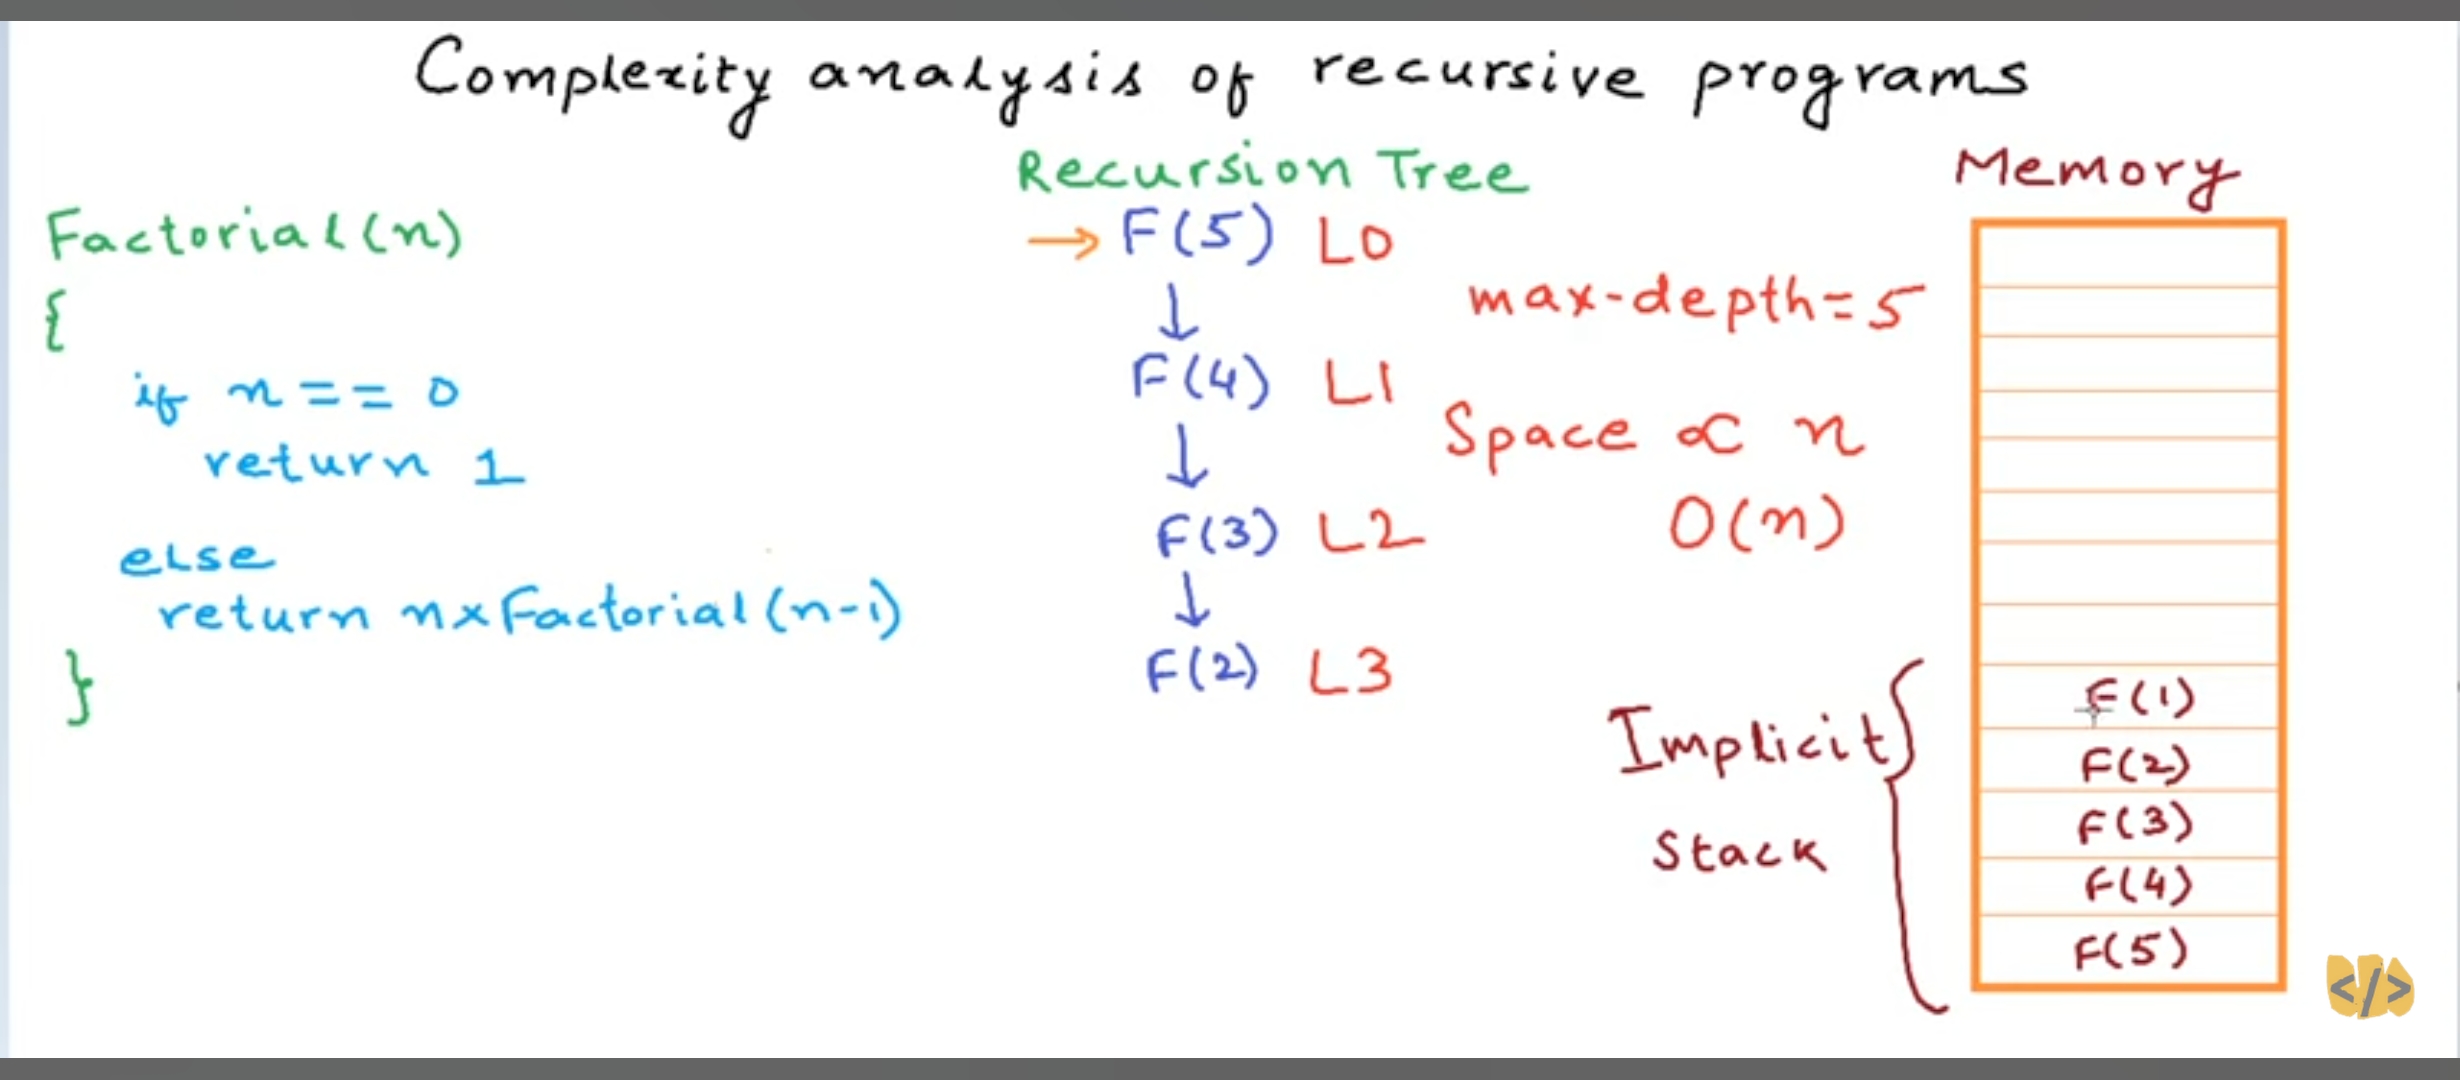 Complexity analysis of recursive programs
Factorial(n)
{
if n == 0
return 1
else
return n x Factorial(n-1)
}
Recursion Tree
→ F(5) L0
↓
F(4) L1
↓
F(3) L2
↓
F(2) L3
max-depth=5
Space ∝ n
O(n)
Implicit
Stack
Memory
F(1)
F(2)
F(3)
F(4)
F(5)
</>